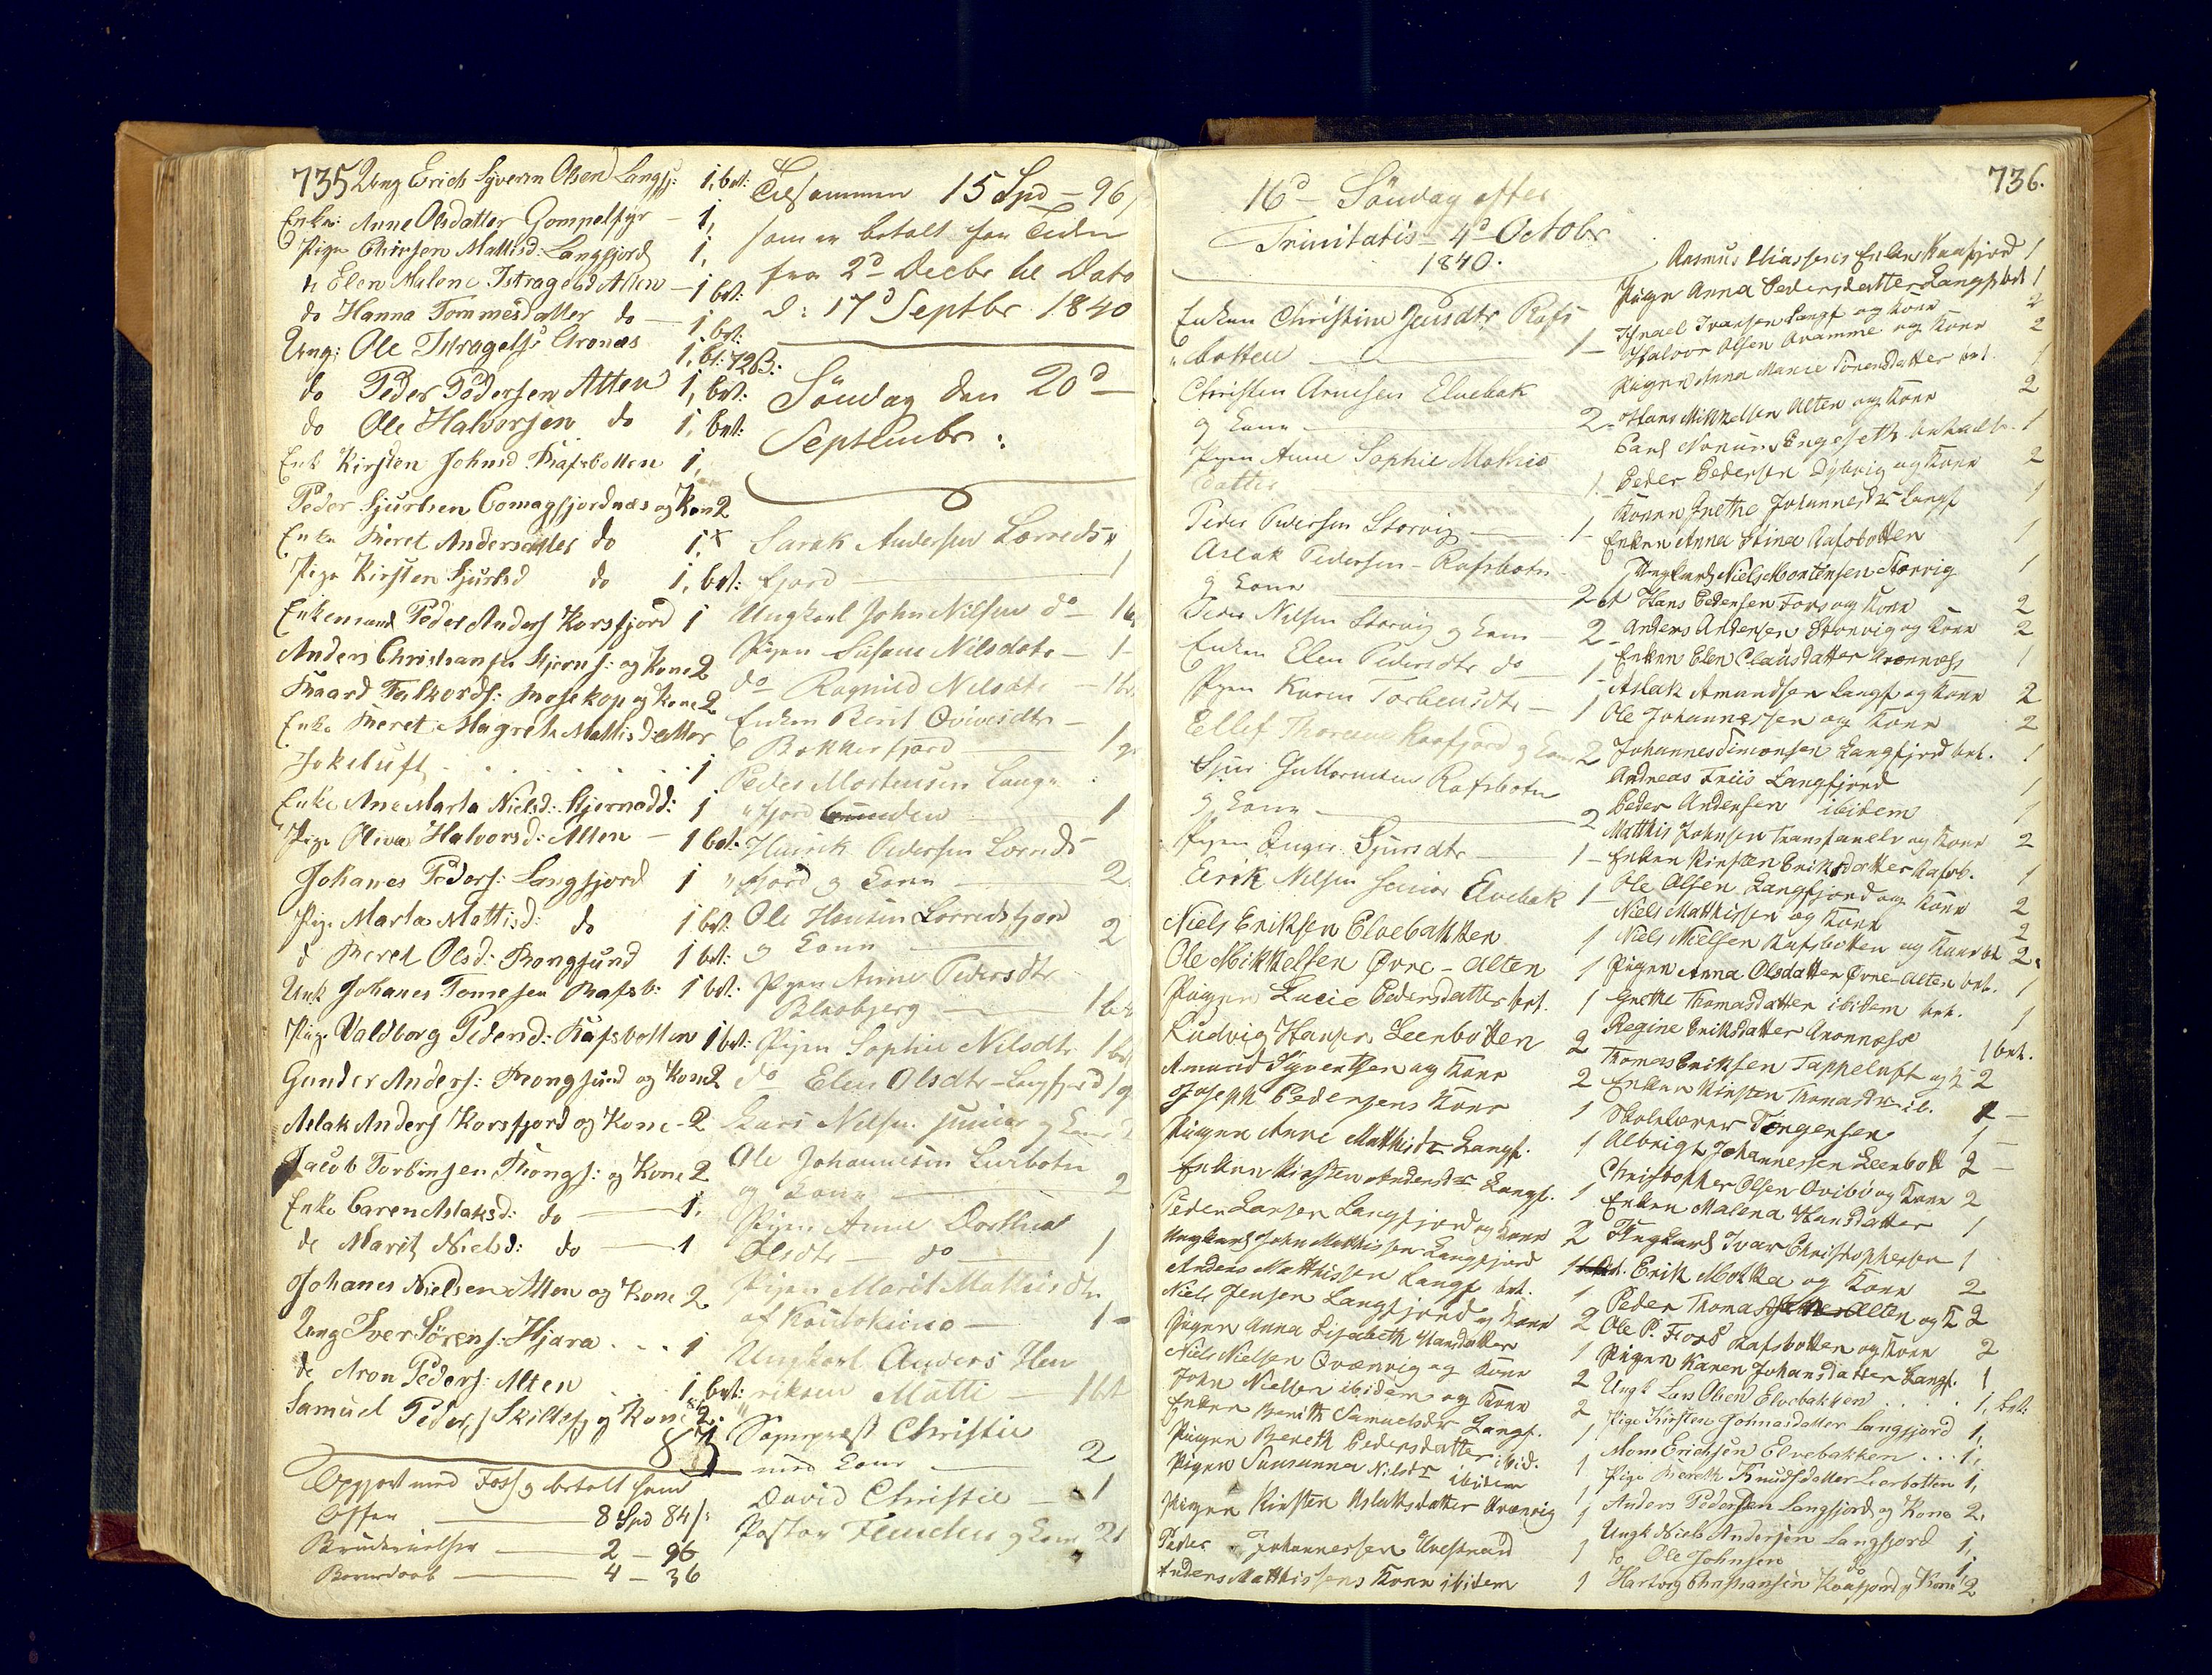 735 Ung Erich Syversn Olsen Langfj: 1, bet:
Enke: Anne Olsdatter Gompelfyr — 1,
Pige Mattisd: Langfjord 1,
d Elen Malene Isragelsd Alten — 1 bet:
do Hanna Tommesdatter do — 1, bet:
Ung: Ole Isragelss Aronæs 1, bt: 72ß:
do Peder Pedersen Alten 1, bet:
do Ole Halvorsen do 1, bet:
Enk Kirsten Johnsd Rafsbotten 1,
Peder Sjursen Comagfjordnæs og Kon 2
Enke Beret Andersdatter do 1,
Pige Kirsten Sjursd do 1, bet:
Enkemand Peder Anders Korsfjord 1
Anders Christiansen Stjerns: og Kone 2
Baard Falkords: Bosekop og Kone 2
Enke Beret Magreth Mattisdatter
Jokeluft . . . . . . 1
Enke Ane Marta Nielsd: Stjernodd: 1
Pige Oliva Halvorsd: Alten — 1 bet:
Johanes Peders: Langfjord 1
Pig. Marta Mattisd: do 1 bet:
d Beret Olsd: Rongsund 1 bet:
Unk Johanes Tomesen Rafsb: 1 bet:
Pige Valdborg Pedersd: Rafsbotten 1 bet:
Gunder Anders: Rongsund og Kone 2
Aslak Anders Korsfjord og Kone - 2
Jacob Torbinsen Rongs: og Kone 2
Enke Caren Aslaksd: do — 1,
do Marit Nielsd: do — 1
Johanes Nielsen Alten og Kone 2
Ung Iver Sörens: Hjara . . . 1
do Aron Peders: Alten . . 1, bet:
Samuel Peders Skillefj og Kone 2.
Opgjort med Foss og betalt saml
Offer — 8 Spd 84 ß
Brudevielser — 2 — 96
Barnedaab — 4 — 36
Tilsammen 15 Spd — 96
som er betalt for Tiden
fra 2d Decbr til Dato
d: 17d Septbr 1840
Söndag den 20d —
Septembr:
Sarak Andersen Lerreds
fjord — 1
Ungkarl John Nilsen do — 1 b
Pigen Susane Nilsdatr — 1 -
do Ragnild Nilsdtr — 1 b
Enken Berit Qvivesdtr —
Bekkerfjord — 1
Peder Mortensen Lang
fjord — 1
Henrik Pedersen Lerreds
fjord og Kone — 2
Ole Hansen Lerredsfjord
og Kone — 2
Pigen Anne Pedersdtr
Blaabjerg — 1 bet
Pigen Sophie Nilsdtr 1 bet
do Elen Olsdtr Langfjord 1
Lars Nilsen junior og Kone 2
Ole Johannesen Leerbotn
og Kone — 2
Pigen Anne Dorthea
Olsdtr — do — 1
Pigen Marit Mathisdtr
af Koutokeino — 1 -
Ungkarl Anders Hen
riksen Matti — 1 bet
Sogneprest Christie
med Kone — 2
David Christie — 1
Pastor og Kone 2
736.
16d — Söndag efter
Trinitatis 4d Octobr
1840.
Enken Christine Jensdtr Rafs
botten — 1 —
Christen Arnesen Elvebak
og Kone — 2
Pigen Anne Sophie Mathis
datter — 1 -
Peder Pedersen Storvig — 1 -
Aslak Pedersen - Rafsbotn
og Kone — 2
Peder Nilsen Storvig og Kone — 2
Enken Elen Pedersdtr do — 1
Pigen Karen Torbensdtr — 1
Ellef Thoresen Kaafjord og Kone 2
Sjur Guttormsen Rafsbotn
og Kone — 2
Pigen Inger Sjursdtr — 1 —
Erik Nilsen senior Elvebak 1
Niels Eriksen Elvebakken 1
Ole Mikkelsen Øvre - Alten 1
Pigen Lucie Pedersdatter bet. 1
Ludvig Hansen Leerbotten 2
Amund Syvertsen og Kone 2
Joseph Pedersens Kone 1
Pigen Anne Matthisdr Langf. 1
Enken Kirsten Andersdr Langf. 1
Peder Larsen Langfjord og Kone 2
Ungkarl John Matthissen Langfjord 1
Anders Matthissen Langf. bet. 1
Niels Jensen Langfjord og Kone 2
Pigen Anna Lisabeth Hansdatter 1
Niels Nielsen Qvænvig og Kone 2
John Nielsen ibidem og Kone 2
Enken Berith Samuelsdr Langf. 1
Pigen Bereth Pedersdatter ibid. 1
Pigen Susanna Nilsdr ibidem 1
Pigen Kirsten Aslaksdatter Qvænvig 1
Peder Johannessen 1
Anders Matthissens Kone ibidem 1
Rasmus Eliassens Enke Kaafjord 1
Pigen Anna Pedersdatter Langf. bet 1
Israel Ivarsen Langf og Kone 2
Halvor Olsen og Kone 2
Pigen Anna Marie Sörensdatter bet. 1
Hans Mikkelsen Alten og Kone 2
Carl Engeseth betalt. 1
Peder Pedersen Dybvig og Kone 2
Konen Grethe Johannesdr Langf 1
Enken Anna Stina Rafsbotten 1
Ungkarl Niels Mortensen Storvig 1
Hans Pedersen Fors og Kone 2
Anders Andersen Storvig og Kone 2
Enken Elen Clausdatter Aronness 1
Aslak Amundsen Langf og Kone 2
Ole Johannessen og Kone 2
Johannes Simonsen Langfjord bet. 1
Andreas Friis Langfjord 1
Peder Andersen ibidem 1
Matthis Johnsen Transfarelv og Kone 2
Enken Kirsten Eriksdatter Rafsb. 1
Ole Olsen Langfjord og Kone 2
Niels Matthissen og Kone 2
Niels Nielsen Rafsbotten og Kone bet 2
Pigen Anna Olsdatter Øvre-Alten bet. 1
Grethe Thomasdatter ibidem bet. 1
Regine Eriksdatter Aronnæss 1 bet.
Thomas Eriksen Tappeluft og K 2
Enken Kirsten Thomasdr ib. 1 —
Skolelærer Törgersen 1 —
Albrigt Johannessen Leerbott 2 —
Christopher Olsen Qvibi og Kone 2
Enken Malena Hansdatter 1
Ungkarl Ivar Christophersen 1
Erik Mokka og Kone 2
Peder Thomassen Alten og K 2
Ole P. Foss Rafsbotten og Kone 2
Pigen Karen Johansdatter Langf. 1
Ungk Lars Olsen Elvebakken . . . . 1, bet:
Pige Kirsten Johnasdatter Langfjord 1,
Mons Erichsen Elvebakken . . . 1,
Pige Bereth Knudsdatter Leerbotten 1,
Anders Pedersen Langfjord og Kone 2,
Ungk Niels Andersen Langfjord 1,
do Ole Johnsen do 1,
Hartvig Christiansen Kaafjord og Kone 2